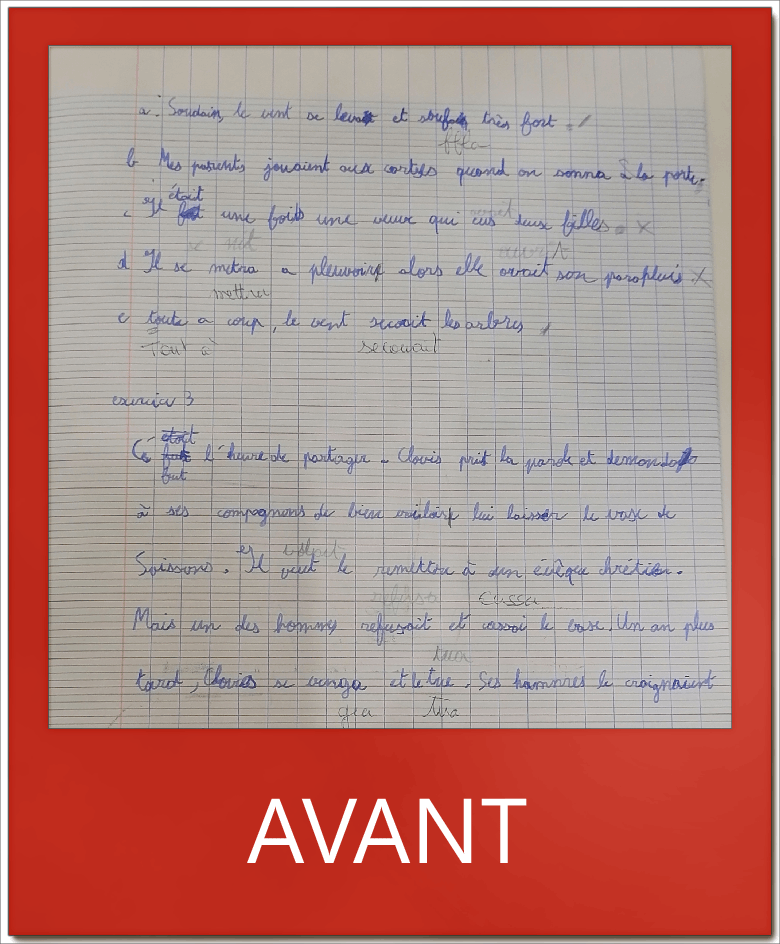 a. Soudain, le vent se leva et soufa très fort.
ffla
b Mes parents jouaient aux cartes quand on sonna à la porte.
était
c Il une fois une veuve qui eus deux filles.
d Il se metra a pleuvoir alors elle avait son parapluis
mettra
e toute a coup, le vent secouait les arbres
Tout à secouait
exercice 3
était
Ce l'heure de partager. Clovis prit la parole et demanda
fut
à ses compagnons de bien vouloir lui laisser le vase de
Soissons. Il veut le remettre à un évêque chrétien.
refusa cassa
Mais un des hommes refusait et cassai le vase. Un an plus
tua
tard, Clovis se venga et le tue. Ses hommes le craignaient
gea tua
AVANT